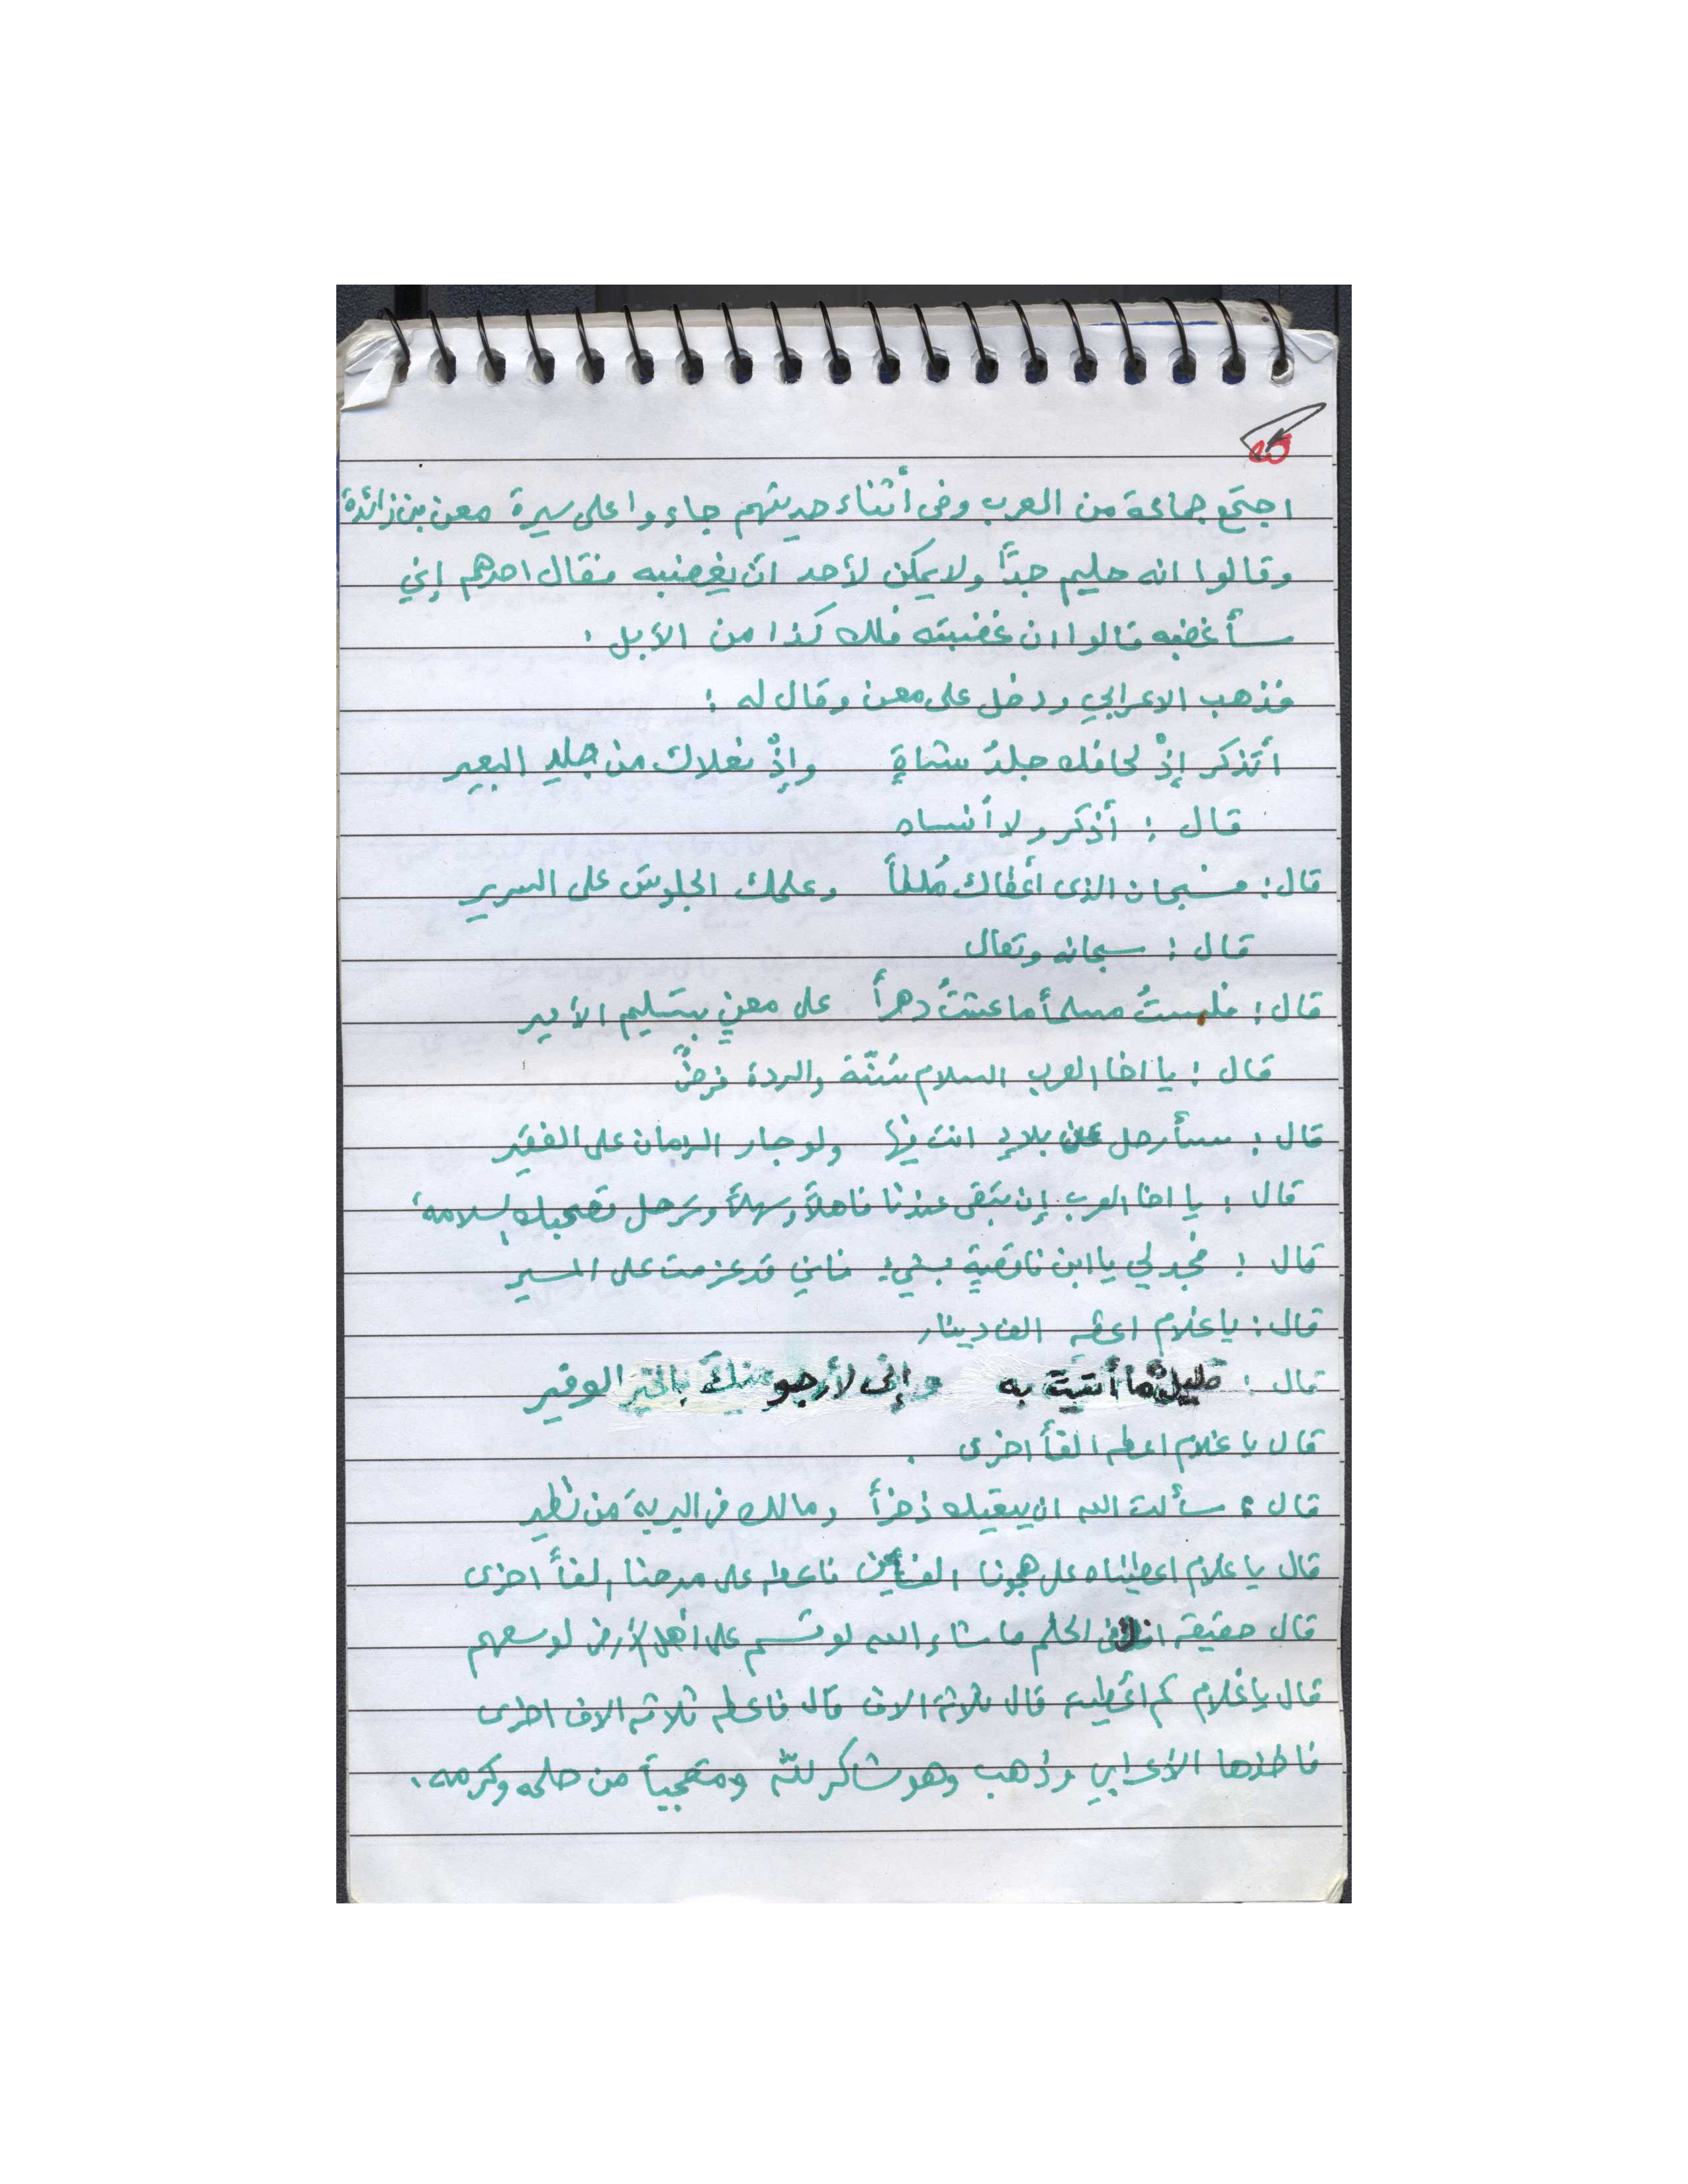 اجتمع جماعة من العرب وفى أثناء حديثهم جاءوا على سيرة معن بن زائدة
وقالوا انه حليم جداً ولا يمكن لأحد ان يغضبه فقال احدهم إني
سأغضبه قالوا ان غضبته فلك كذا من الأبل .
فذهب الاعرابي ودخل على معن وقال له :
أتذكر إذْ لحافك جلدُ شاةٍ وإذْ نعلاك من جلدِ البعير
قال : أذكر ولا أنساه
قال : فسبحان الذى أعطاك مُلكاً وعلمك الجلوسَ على السرير
قال : سبحانه وتعالى
قال : فلستُ مسلماً ما عشتُ دهراً على معنٍ بتسليم الأمير
قال : يا اخا العرب السلام سُنّة والردة فرضٌ
قال : سأرحل عن بلادٍ انت فيها ولو جار الزمان على الفقير
قال : يا اخا العرب إن تبقى عندنا فاهلاً وسهلاً وترحل تصحبك السلامه .
قال : فجد لي يا ابن ناقصةٍ بشيءٍ فاني قد عزمت على المسير
قال : يا غلام اعطه الف دينار
قال : قليلٌ ما أتيت به وإنى لأرجو منكَ بالخيرِ الوفير
قال يا غلام اعطه الفاً اخرى .
قال : سألت الله ان يبقيك ذخراً ومالك فى البرية من نظير
قال يا غلام اعطيناه على هجونا الفين فاعطه على مدحنا الفاً اخرى
قال حقيقه الحلم ما شاء الله لو قسم على أهل الأرض لوسعهم
قال يا غلام كم اعطيته قال ثلاثة الاف قال فاعطه ثلاثه الاف اخرى
فاخذها الأعرابي وذهب وهو شاكر للّه ومتعجباً من حلمه وكرمه .